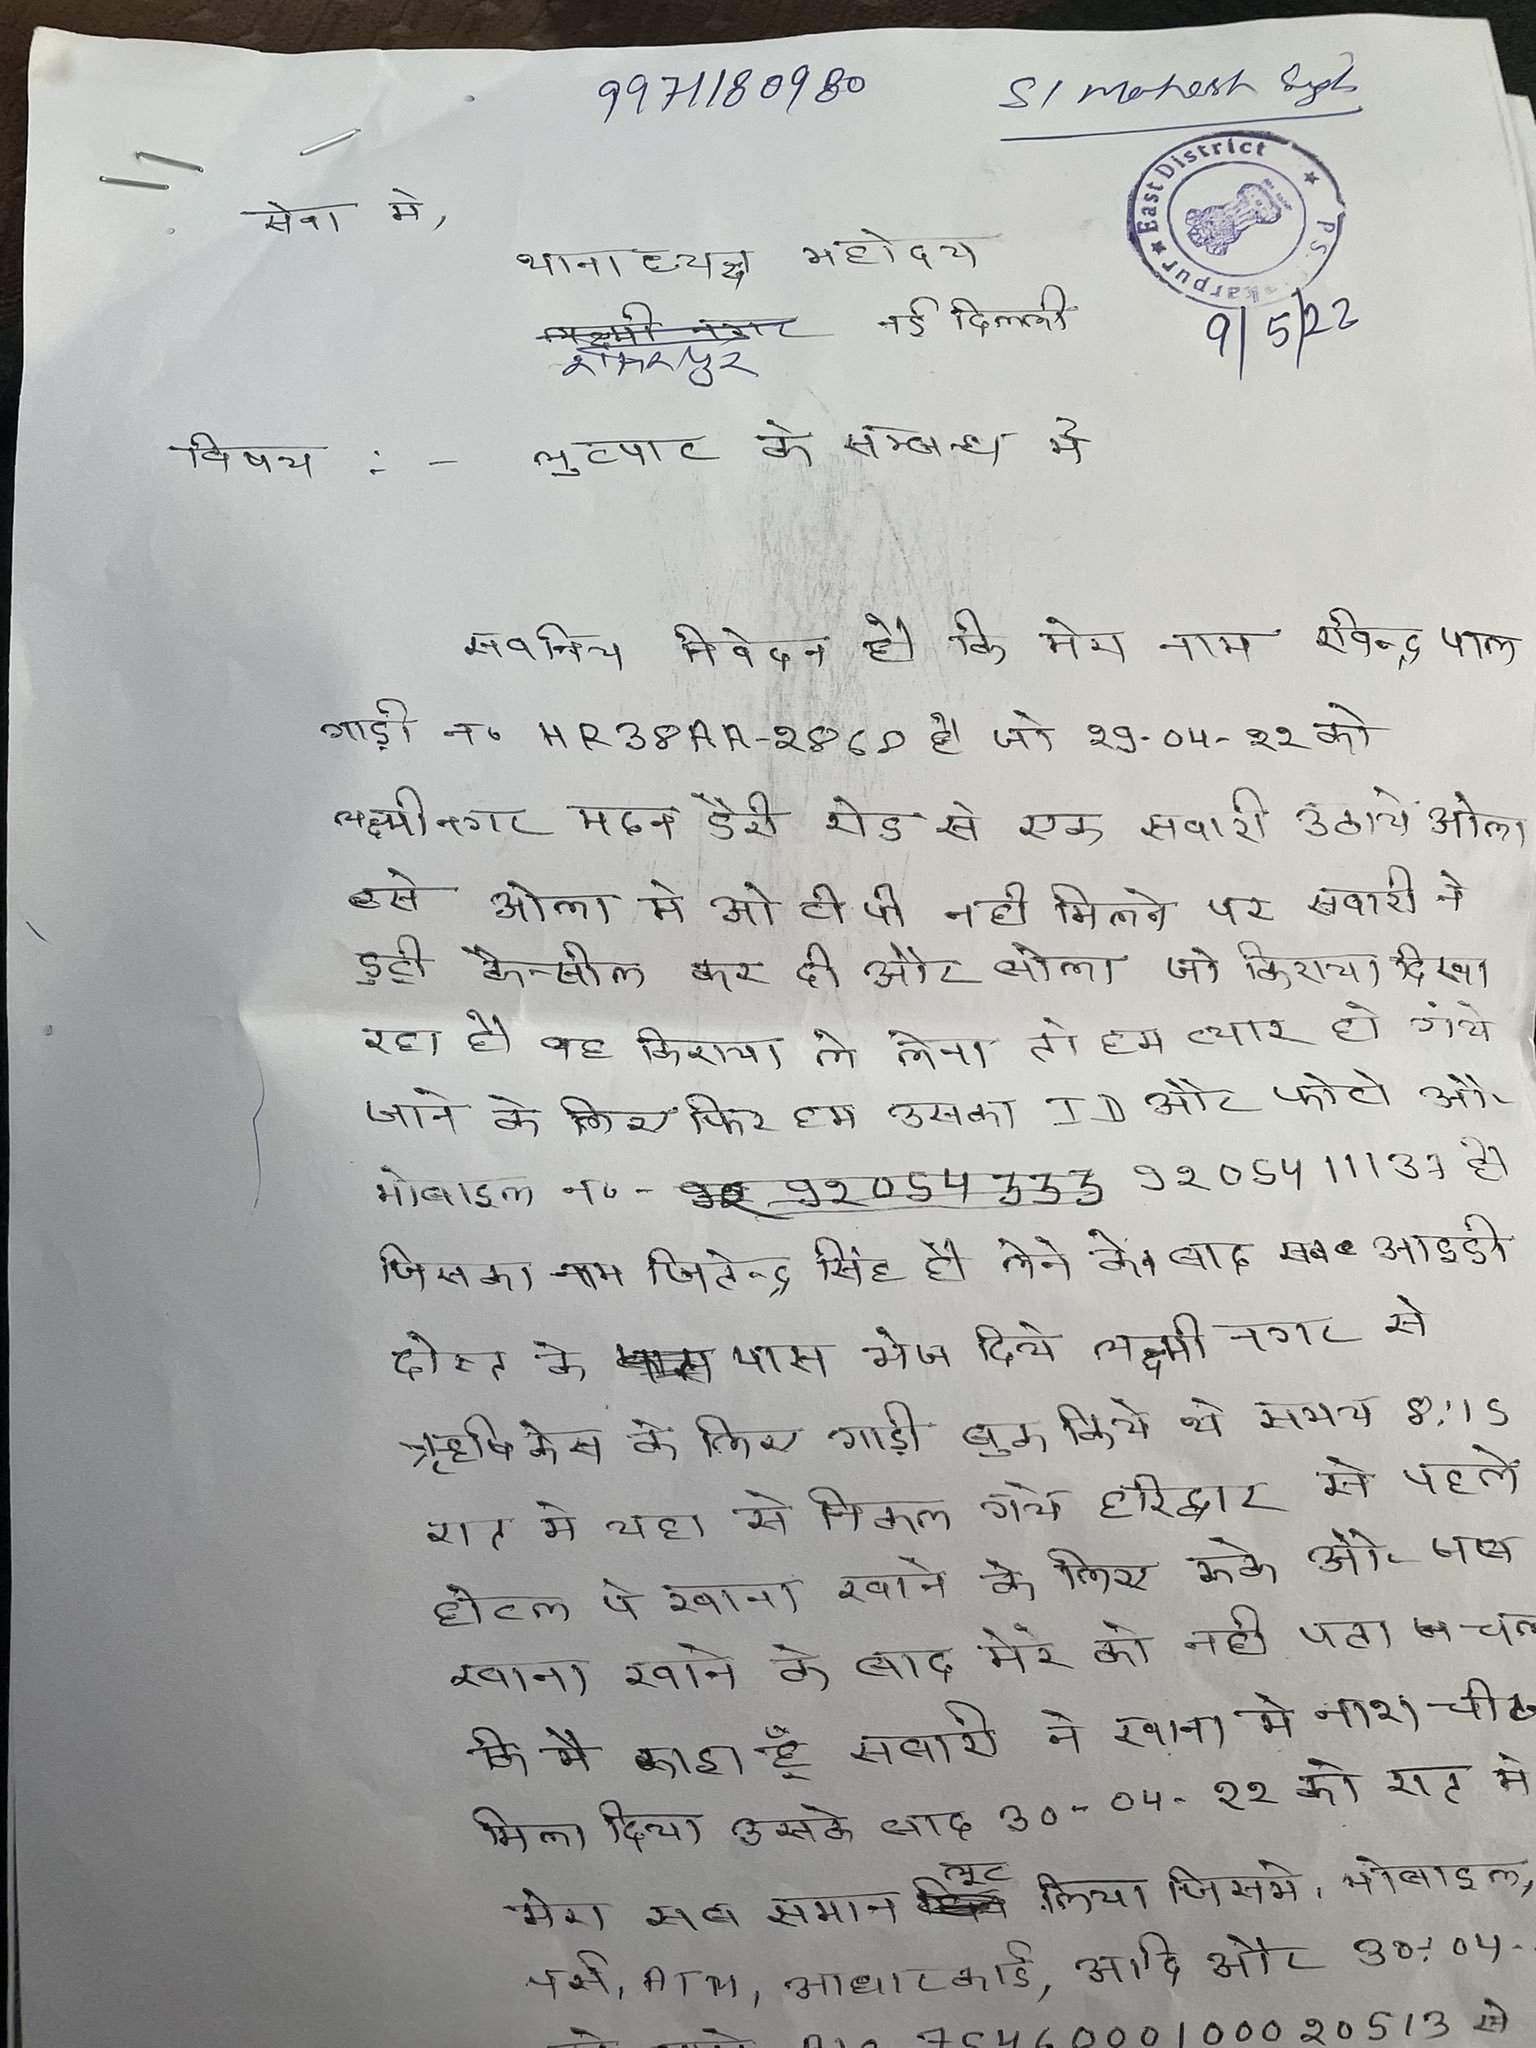 9971180980 SI Mahesh Singh
East District P.S. karpur
सेवा मे,
थानाध्यक्ष महोदय
लक्ष्मी नगर नई दिल्ली
शकरपुर
9/5/22
विषय :- लुटपाट के सम्बन्ध मे
सवनिय निवेदन है कि मेरा नाम रविन्द्र पाल
गाड़ी न० HR38AA-2860 है जो 29-04-22 को
लक्ष्मीनगर मदन डैरी रोड से एक सवारी उठाये ओला
से ओला मे ओ टी पी नही मिलने पर सवारी ने
डुटी कैन्सील कर दी और बोला जो किराया दिखा
रहा है वह किराया ले लेना तो हम त्यार हो गये
जाने के लिए फिर हम उसका ID और फोटो और
मोबाइल न०- 92054333 9205411137 है
जिसका नाम जितेन्द्र सिंह है लेने के बाद सब आइडी
दोस्त के पास भेज दिये लक्ष्मी नगर से
ऋषिकेस के लिए गाड़ी बुक किये थे समय 8:15
रात मे यहा से निकल गये हरिद्वार से पहले
होटल पे खाना खाने के लिए रूके और जब
खाना खाने के बाद मेरे को नही पता चल
कि मै कहा हूँ सवारी ने खाना मे नाशा चीज
मिला दिया उसके बाद 30-04-22 को रात मे
मेरा सब समान लूट लिया जिसमे, मोबाइल,
पर्स, ATM, आधारकार्ड, आदि और 30-04-
7546000100020513 से